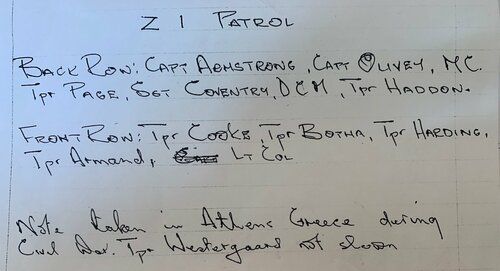 Z 1 PATROL
BACK ROW: CAPT ARMSTRONG, CAPT OLIVEY, MC.
Tpr PAGE, SGT COVENTRY, DCM, Tpr HADDON.
FRONT ROW: Tpr COOKE, Tpr BOTHA, Tpr HARDING,
Tpr Armand, Lt Col
Note taken in Athens Greece during
Civil War. Tpr Westergaard not shown